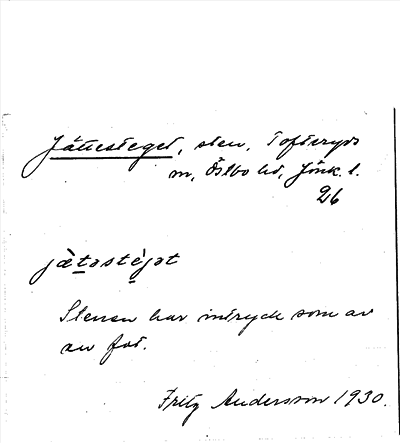 Jättesteget, sten, Tofteryds
sn, Östbo hd, Jönk. l.
26
jæ̀təstèjət
Stenen har intryck som av
en fot.
Fritz Andersson 1930.